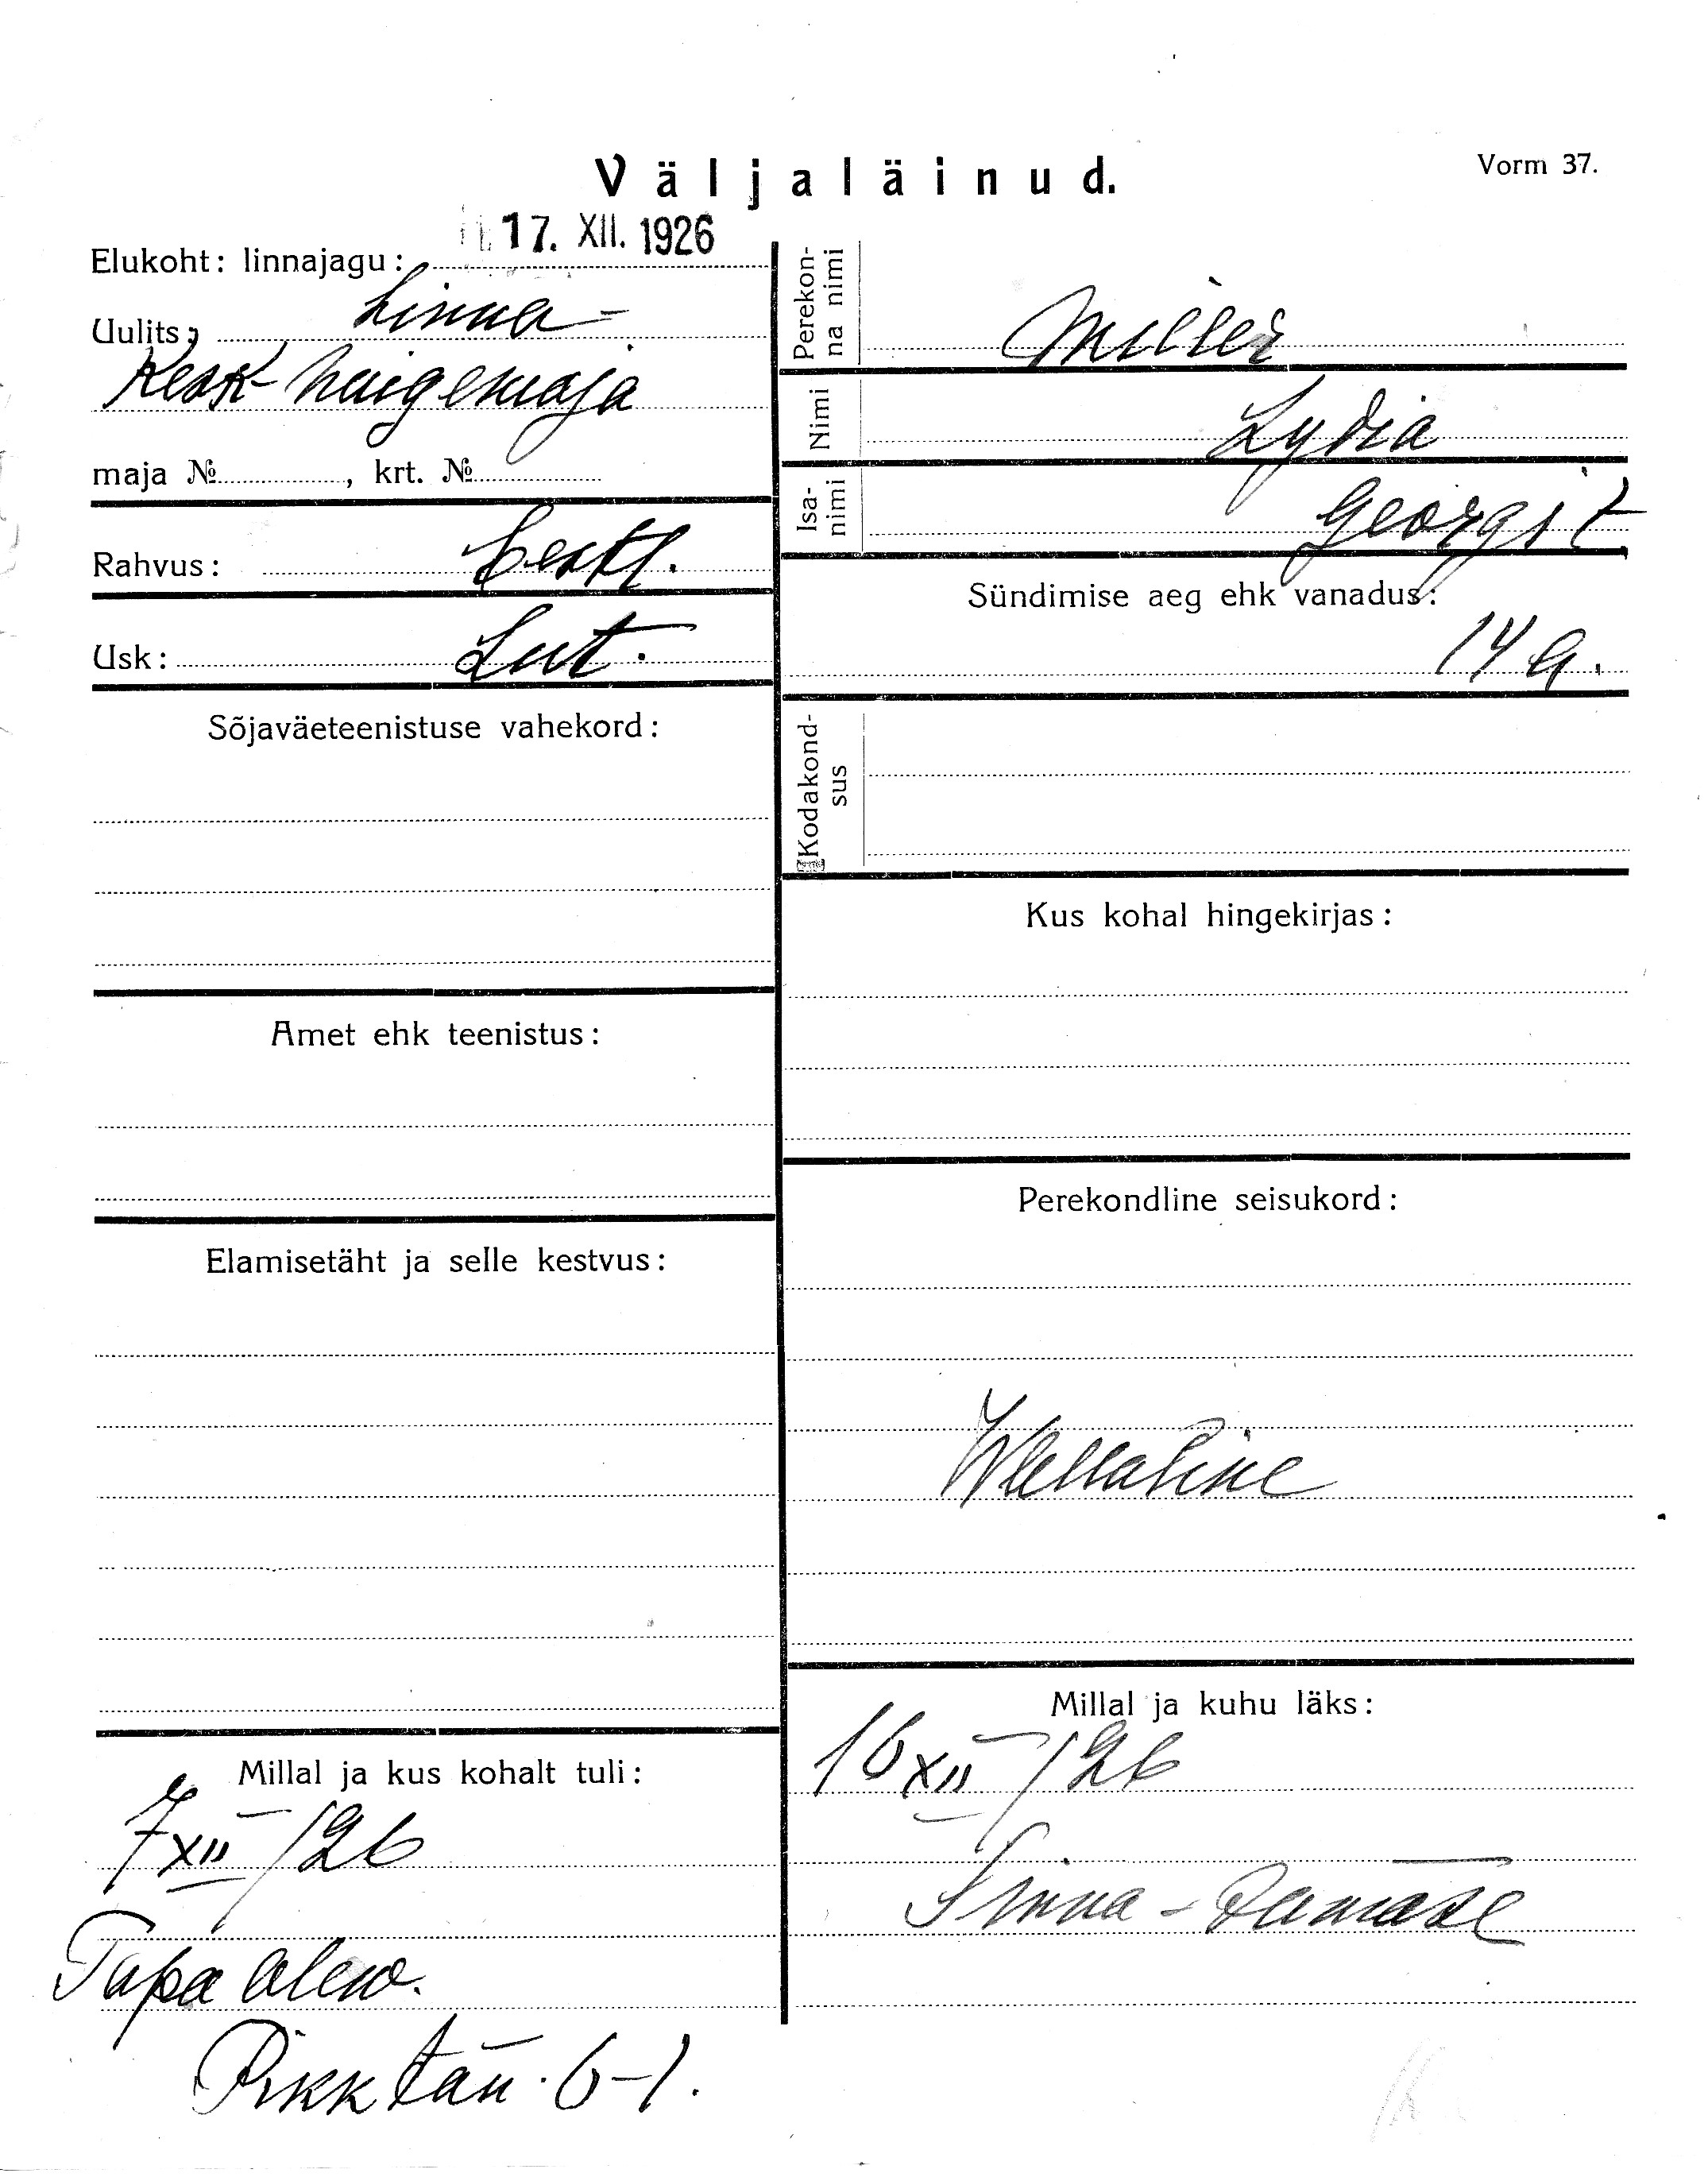 Väljaläinud.
Vorm 37.
17. XII. 1926
Elukoht: linnajagu:
Uulits: Linna-
Kesk-haigemaja
maja №, krt. №
Rahvus: Eestl.
Usk: Lut.
Sõjaväeteenistuse vahekord:
Amet ehk teenistus:
Elamisetäht ja selle kestvus:
Millal ja kus kohalt tuli:
7 XII /26
Tapa alew.
Pikk tän. 6-1.
Perekon-
na nimi
Miller
Nimi Lydia
Isa-
nimi
Georgi t
Sündimise aeg ehk vanadus:
14 a.
Kodakond-
sus
Kus kohal hingekirjas:
Perekondline seisukord:
Wallaline
Millal ja kuhu läks:
16 XII /26